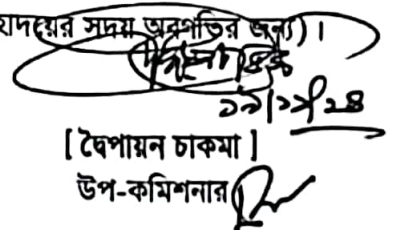 হোদয়ের সদয় অবগতির জন্য)।
১৯/১২/২৪
[ দ্বৈপায়ন চাকমা ]
উপ-কমিশনার